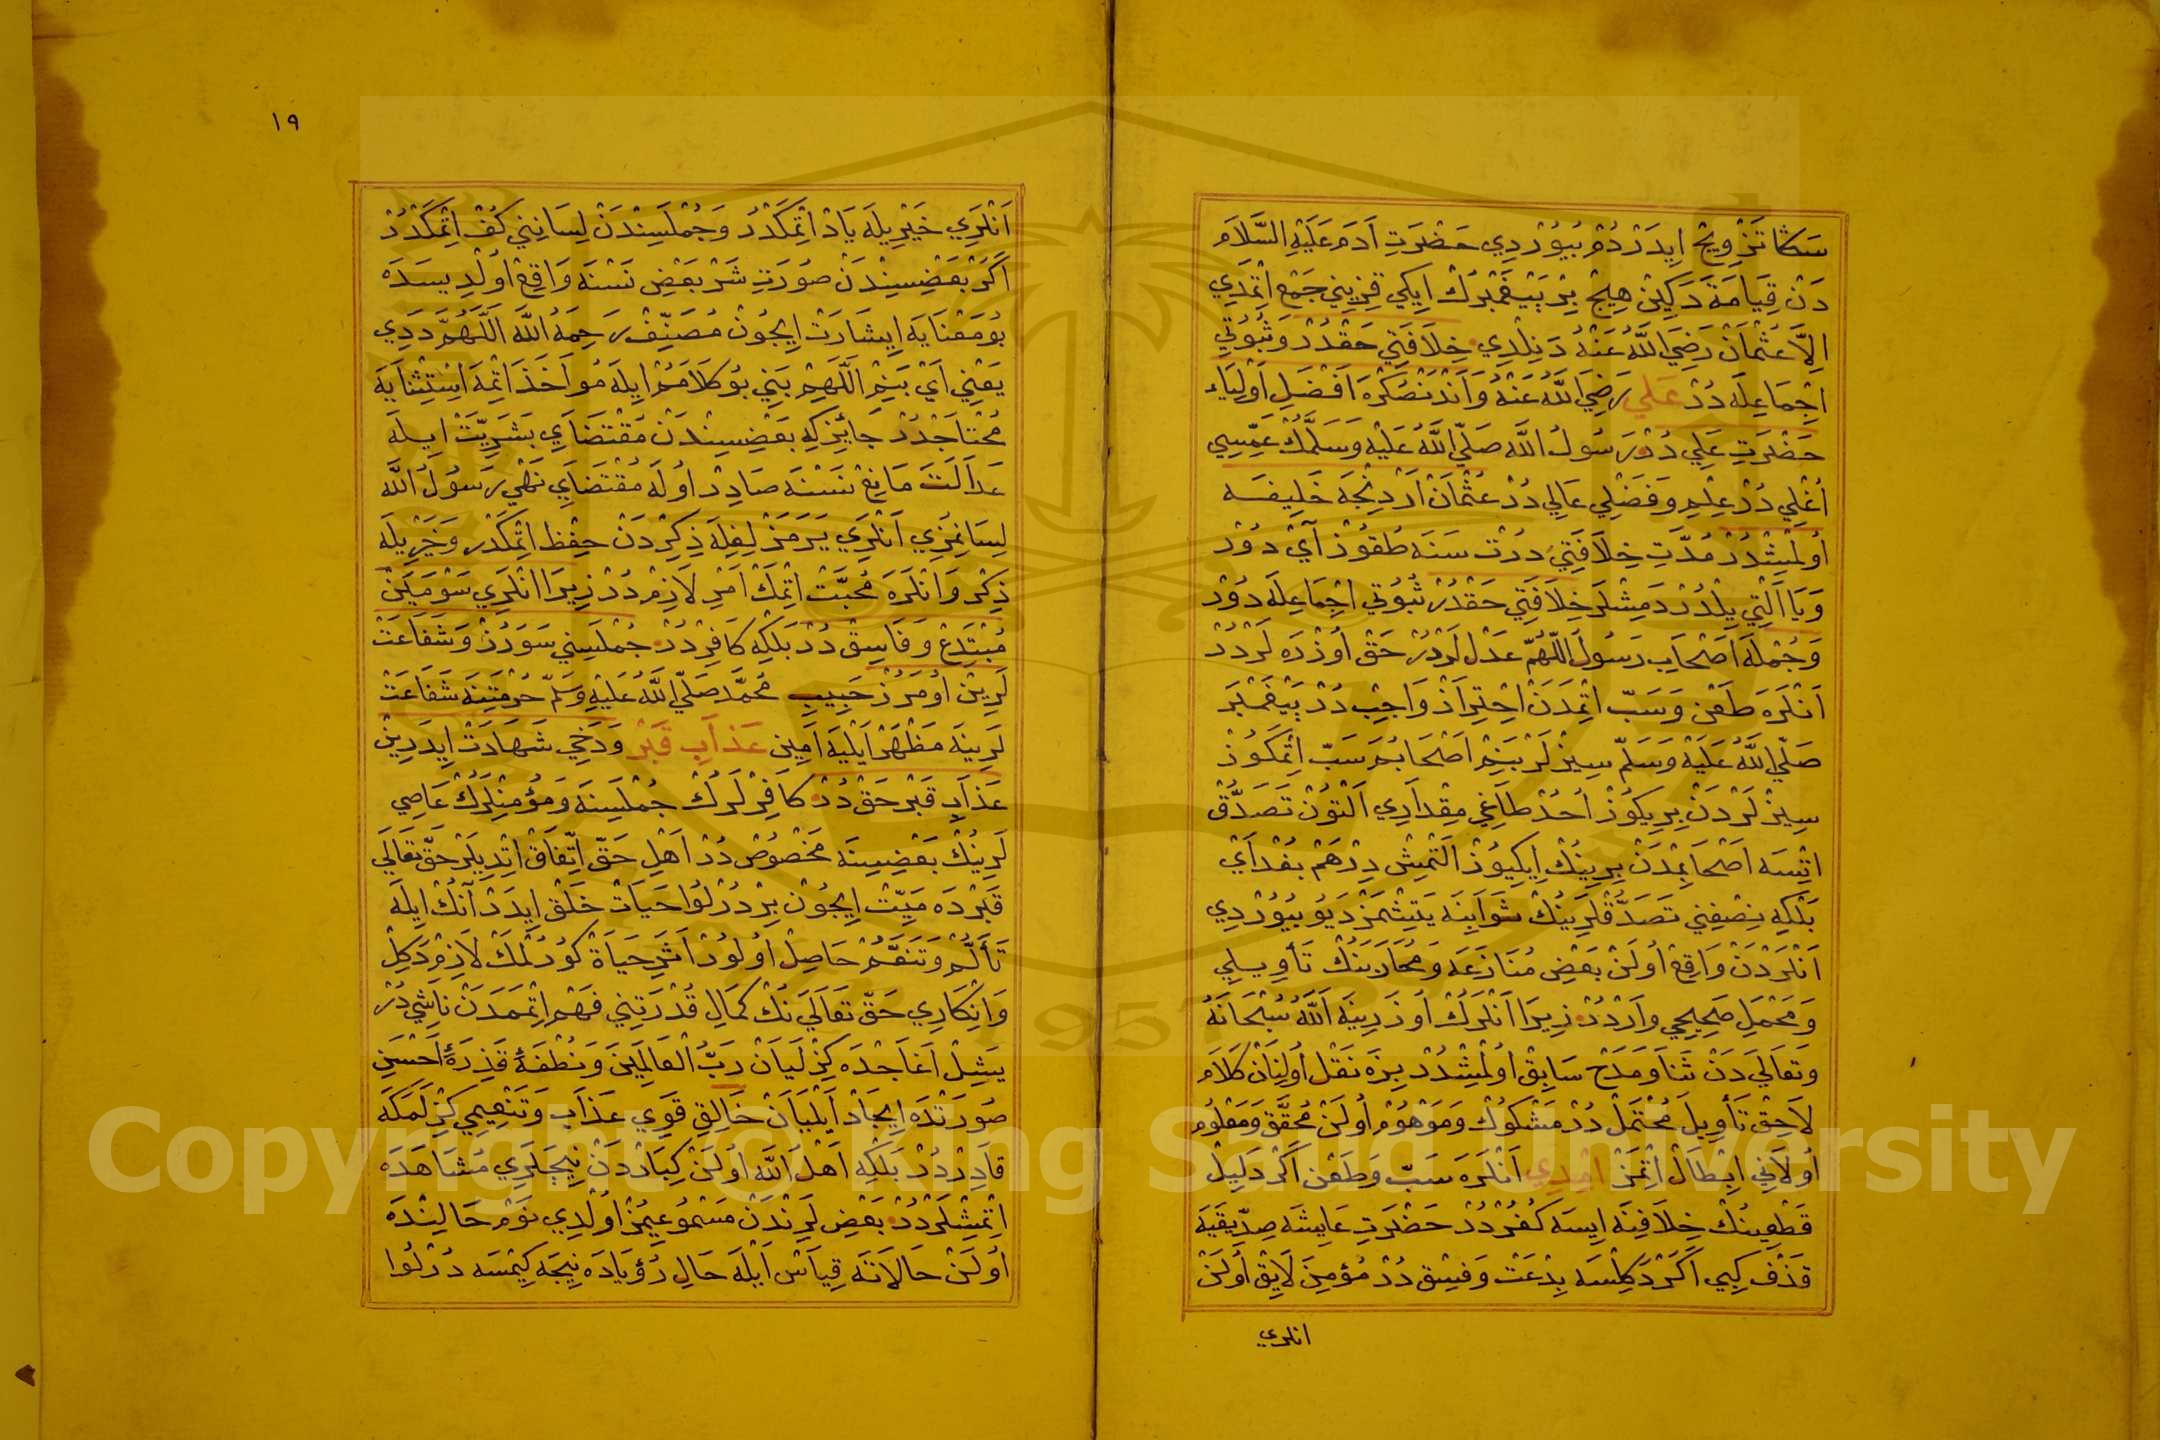 سكا تزويج ايدردم بيوردي حضرت ادم عليه السلام
دن قيامة دكين هيج بر بيغمبرك ايكي قزيني جمع اتمدي
الا عثمان رضي الله عنه دنلدي خلافتي حقدر وثبوتي
اجماعله در علي رضي الله عنه واندنصكره افضل اولياء
حضرت علي در رسول الله صلي الله عليه وسلمك عميسي
اغلي در علم وفضلي عالي در عثمان اردنجه خليفه
اولمشدر مدت خلافتي درت سنه طقوز آي در
ويا التي يلدر دمشلر خلافتي حقدر ثبوتي اجماعله در
وجمله اصحاب رسول اللهم عدل لردر حق اوزره لردر
انلره طعن وسب اتمدن احتراز واجب در بيغمبر
صلي الله عليه وسلم سيزلر بنم اصحابمه سب اتمكوز
سيزلردن بريكوز احد طاغي مقداري التون تصدق
اتسه اصحابمدن برينك ايكيوز التمش درهم بغداي
بلكه نصفني تصدقلرينك ثوابنه يتشمز ديو بيوردي
انلردن واقع اولن بعض منازعه ومحاربنك تأويلي
ومحمل صحيحي واردر زيرا انلرك اوزرينه الله سبحانه
وتعالي دن ثنا ومدح سابق اولمشدر بزه نقل اولنان كلام
لاحق تأويل محتمل در مشكوك وموهوم اولن محقق ومعلوم
اولاني ابطال اتمز امدي انلره سب وطعن اكر دليل
قطعينك خلافنه ايسه كفردر حضرت عايشه صديقيه
قذف كبي اكر دكلسه بدعت وفسق در مؤمن لايق اولن
انلري
١٩
انلري خيريله ياد اتمكدر وجملسندن لسانيني كف اتمكدر
اكر بعضيسندن صورت شر بعض نسنه واقع اولديسده
بو معنايه ايشارت ايجون مصنف رحمه الله اللهم ددي
يعني اي بنم اللهم بني بو كلامم ايله مواخذ اتمه استثنايه
محتاجدر جائزكه بعضيسندن مقتضاي بشريت ايله
عدالت مانع نسنه صادر اوله مقتضاي نهي رسول الله
لسانمزي انلري يرمز لغله ذكردن حفظ اتمكدر وخيريله
ذكر وانلره محبت اتمك امر لازم در زيرا انلري سوميكن
مبتدع وفاسق در بلكه كافر در جملسني سورز وشفاعت
لرين اومرز حبيب محمد صلي الله عليه وسلم حرمتينه شفاعت
لرينه مظهر ايليه امين عذاب قبر ودخي شهادت ايدرين
عذاب قبر حق در كافرلرك جملسنه ومؤمنلرك عاصي
لرينك بعضيسنه مخصوص در اهل حق اتفاق اتديلر حق تعالي
قبرده ميت ايجون بر درلو حيات خلق ايدر آنك ايله
تألم وتنعم حاصل اولور اثر حياة كورلمك لازم دكل
وانكاري حق تعالي نك كمال قدرتني فهم اتممدن ناشي در
يشل اغاجده كزليان رب العالمين ونطفة قذرة احسن
صورتده ايجاد ايليان خالق قوي عذاب وتنعيمي كزلمكه
قادردر بلكه اهل الله اولن كباردن نيجلري مشاهده
اتمشلردر بعض لرندن مسموعيمز اولدي نوم حالنده
اولن حالاته قياس ايله حال رؤياده نيجه كيمسه درلوا